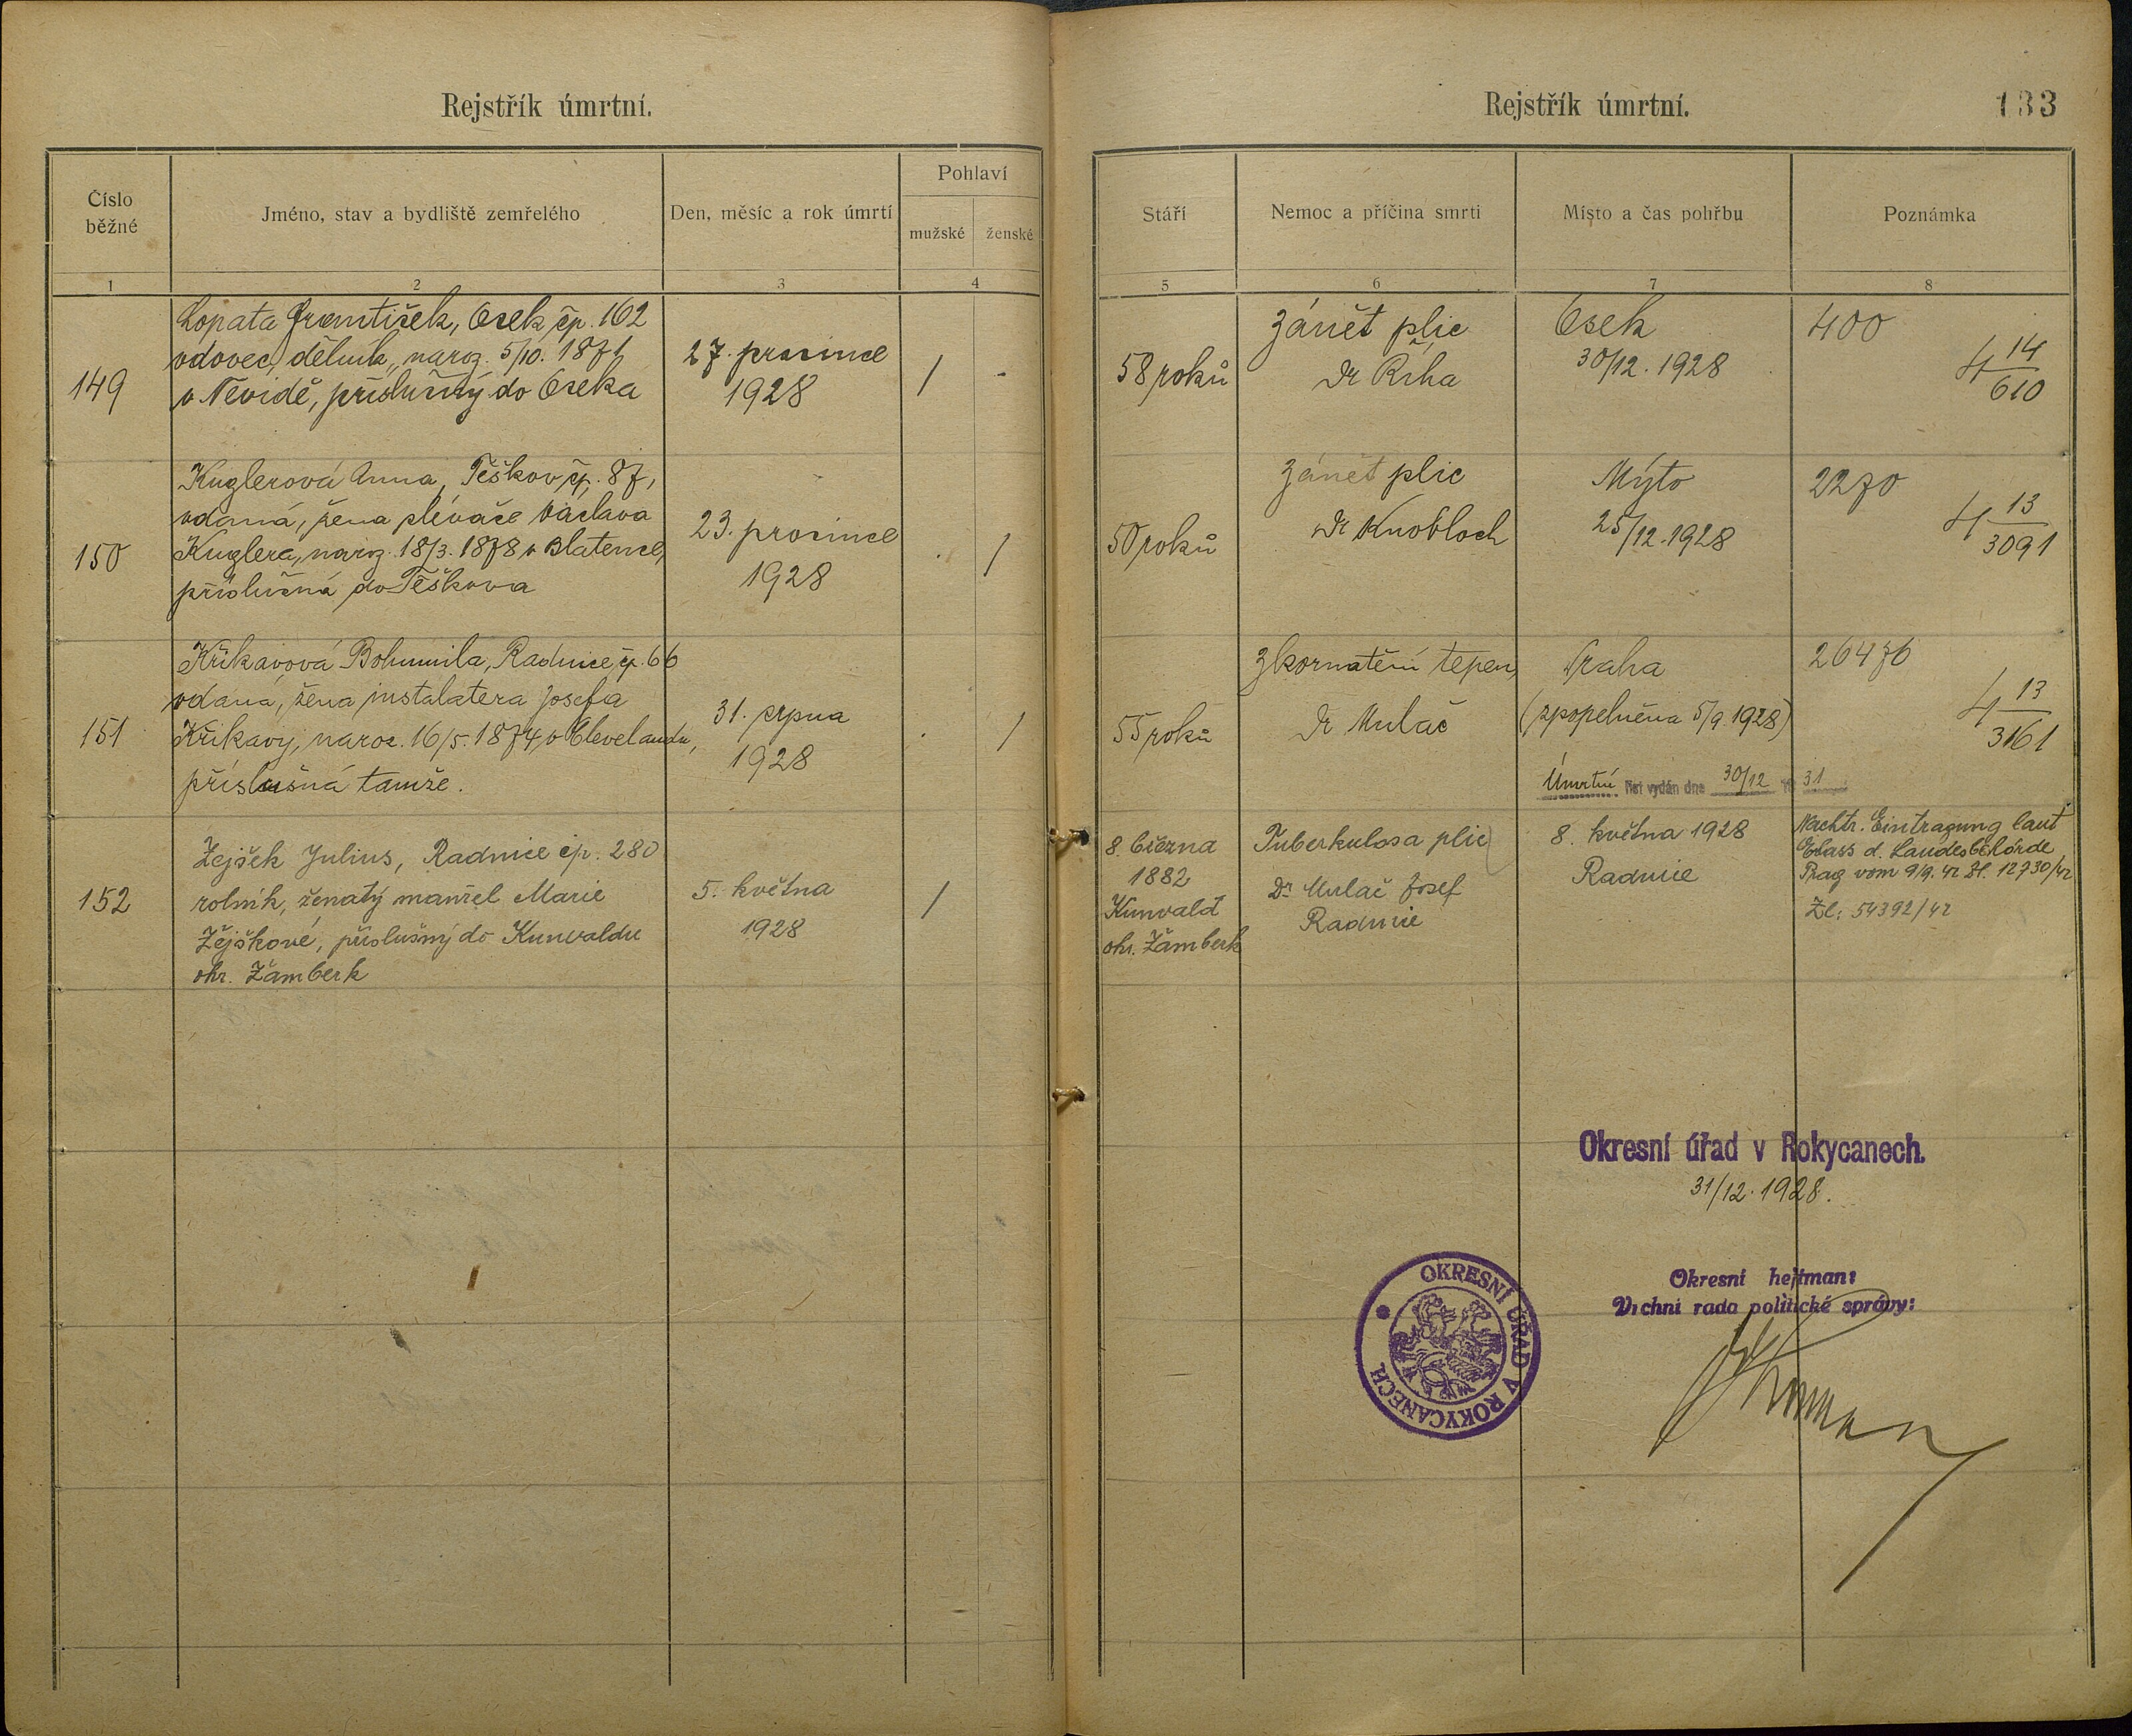 Rejstřík úmrtní.
Číslo běžné
Jméno, stav a bydliště zemřelého
Den, měsíc a rok úmrtí
Pohlaví
mužské ženské
1 2 3 4
149
Lopata František, Osek čp. 162
vdovec, dělník, naroz. 5/10. 1871
v Nevidě, příslušný do Oseka
27. prosince
1928
/ -
150
Kuglerová Anna, Těškov čp. 87,
vdaná, žena pleváče Václava
Kuglera, naroz. 18/3. 1878 v Blatence,
příslušná do Těškova
23. prosince
1928
. /
151
Křikavová Bohumila, Radnice čp. 66
vdaná, žena instalatera Josefa
Křikavy, naroz. 16/5. 1874 v Clevelandu,
příslušná tamže.
31. srpna
1928
. /
152
Zejšek Julius, Radnice čp. 280
rolník, ženatý manžel Marie
Zejškové, příslušný do Kunvaldu
okr. Žamberk
5. května
1928
/
Rejstřík úmrtní.
133
Stáří
Nemoc a příčina smrti
Místo a čas pohřbu
Poznámka
5 6 7 8
58 roků
Zánět plic
Dr Říha
Osek
30/12. 1928
400
4 14/610
50 roků
Zánět plic
Dr Knobloch
Mýto
25/12. 1928
2270
4 13/3091
55 roků
Zkornatění tepen,
Dr Mulač
Praha
(zpopelněna 5/9. 1928)
26476
4 13/3161
Úmrtní list vydán dne 30/12 19 31
8. března
1882
Kunvald
okr. Žamberk
Tuberkulosa plic
Dr Mulač Josef
Radnice
8. května 1928
Radnice
Nachtr. Eintragung laut
Erlass d. Landesbehörde
Prag vom 9/9. 42 Zl. 12730/42
Zl: 54392/42
Okresní úřad v Rokycanech.
31/12. 1928.
Okresní hejtman:
Vrchní rada politické správy:
OKRESNÍ ÚŘAD V ROKYCANECH